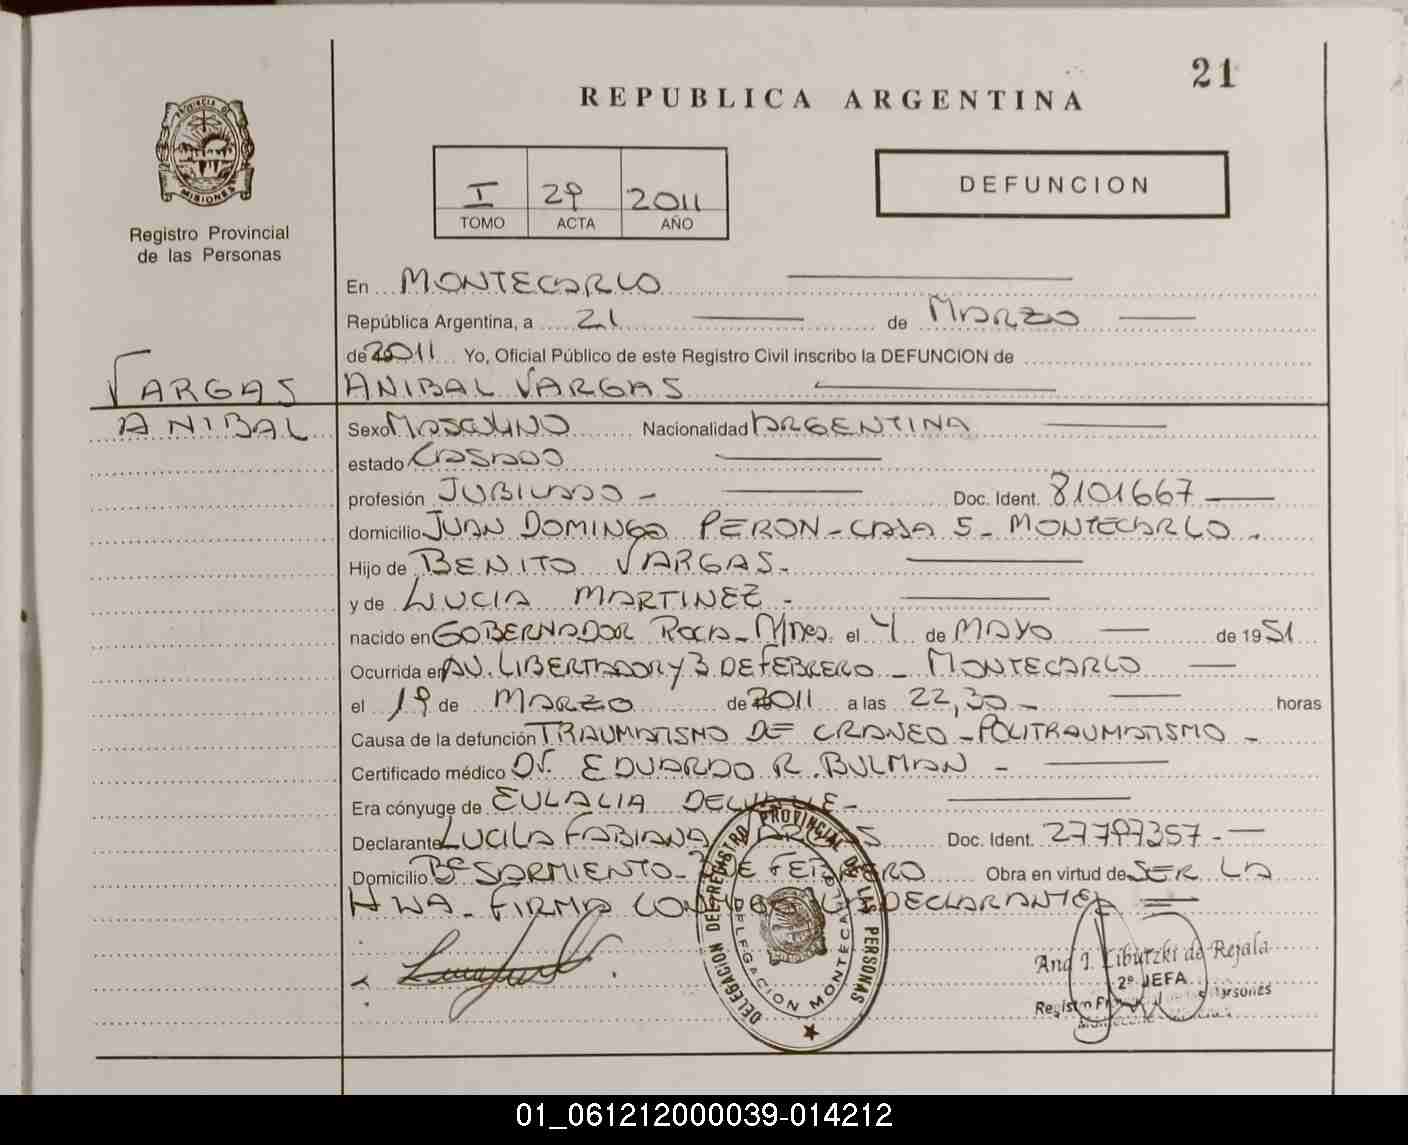 21
REPUBLICA ARGENTINA
PROVINCIA DE
MISIONES
I 29 2011
TOMO ACTA AÑO
DEFUNCION
Registro Provincial
de las Personas
En MONTECARLO
República Argentina, a 21 de MARZO
de 2011 Yo, Oficial Público de este Registro Civil inscribo la DEFUNCION de
VARGAS ANIBAL VARGAS
ANIBAL Sexo MASCULINO Nacionalidad ARGENTINA
estado CASADO
profesión JUBILADO - Doc. Ident. 8101667
domicilio JUAN DOMINGO PERON - CASA 5 - MONTECARLO.
Hijo de BENITO VARGAS -
y de LUCIA MARTINEZ -
nacido en GOBERNADOR ROCA - Mnes. el 4 de MAYO de 1951
Ocurrida en AV. LIBERTADOR y 3 DE FEBRERO - MONTECARLO
el 19 de MARZO de 2011 a las 22,30 - horas
Causa de la defunción TRAUMATISMO DE CRANEO - POLITRAUMATISMO -
Certificado médico Dr. EDUARDO R. BULMAN -
Era cónyuge de EULALIA DELVALLE -
Declarante LUCILA FABIANA VARGAS Doc. Ident. 27797357 -
Domicilio Bº SARMIENTO - 3 DE FEBRERO Obra en virtud de SER LA
HIJA - FIRMA CONMIGO LA DECLARANTE
DELEGACION DEL REGISTRO PROVINCIAL DE LAS PERSONAS
DELEGACION MONTECARLO
Ana I. Liburzki de Rejala
2º JEFA
01_061212000039-014212